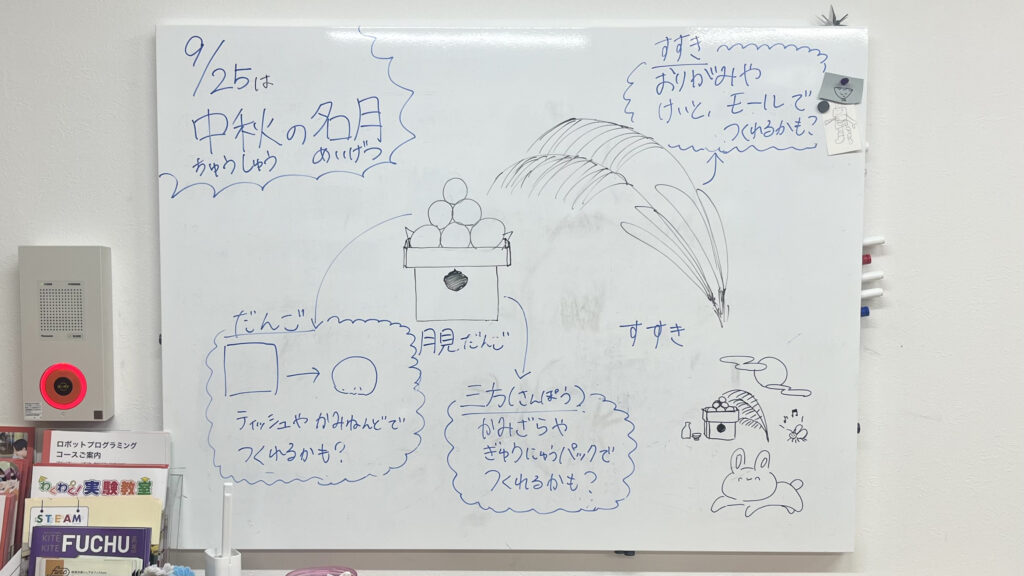 9/25は
中秋の名月
ちゅうしゅう めいげつ
すすき
おりがみや
けいと、モールで
つくれるかも?
だんご
ティッシュや かみねんどで
つくれるかも?
月見だんご
三方(さんぽう)
かみざらや
ぎゅうにゅうパックで
つくれるかも?
すすき
ロボットプログラミング
コースご案内
わくわく実験教室
STEAM
KITE
KITE
FUCHU